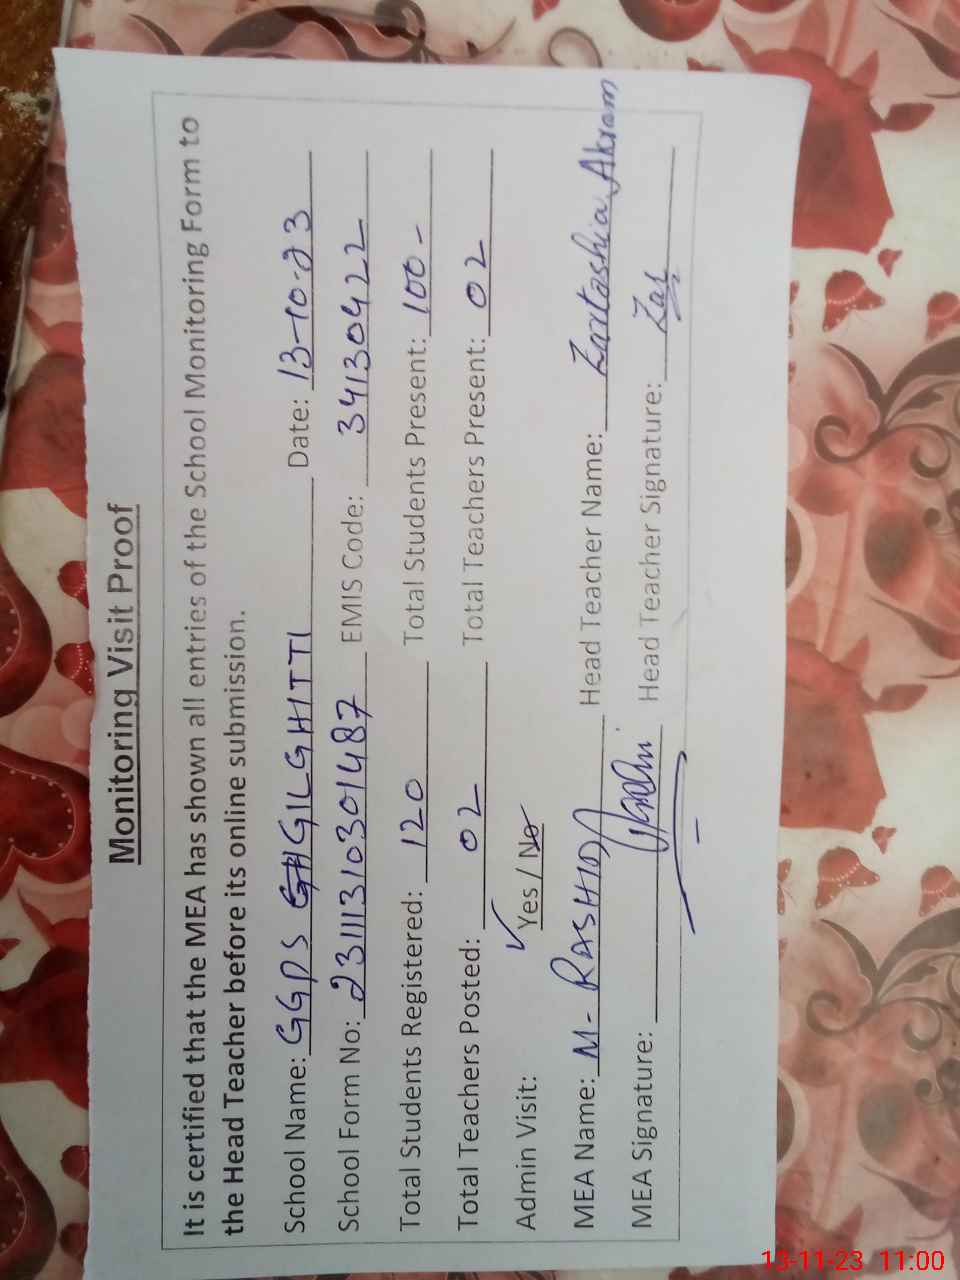 Monitoring Visit Proof
It is certified that the MEA has shown all entries of the School Monitoring Form to
the Head Teacher before its online submission.
School Name: GGPS GILGHITTI Date: 13-10-23
School Form No: 23111310301487 EMIS Code: 34130422
Total Students Registered: 120 Total Students Present: 100-
Total Teachers Posted: 02 Total Teachers Present: 02
Admin Visit: Yes / No
MEA Name: M- RASHID Head Teacher Name: Zartashia Akram
MEA Signature: Head Teacher Signature: Zar
13-11-23 11:00